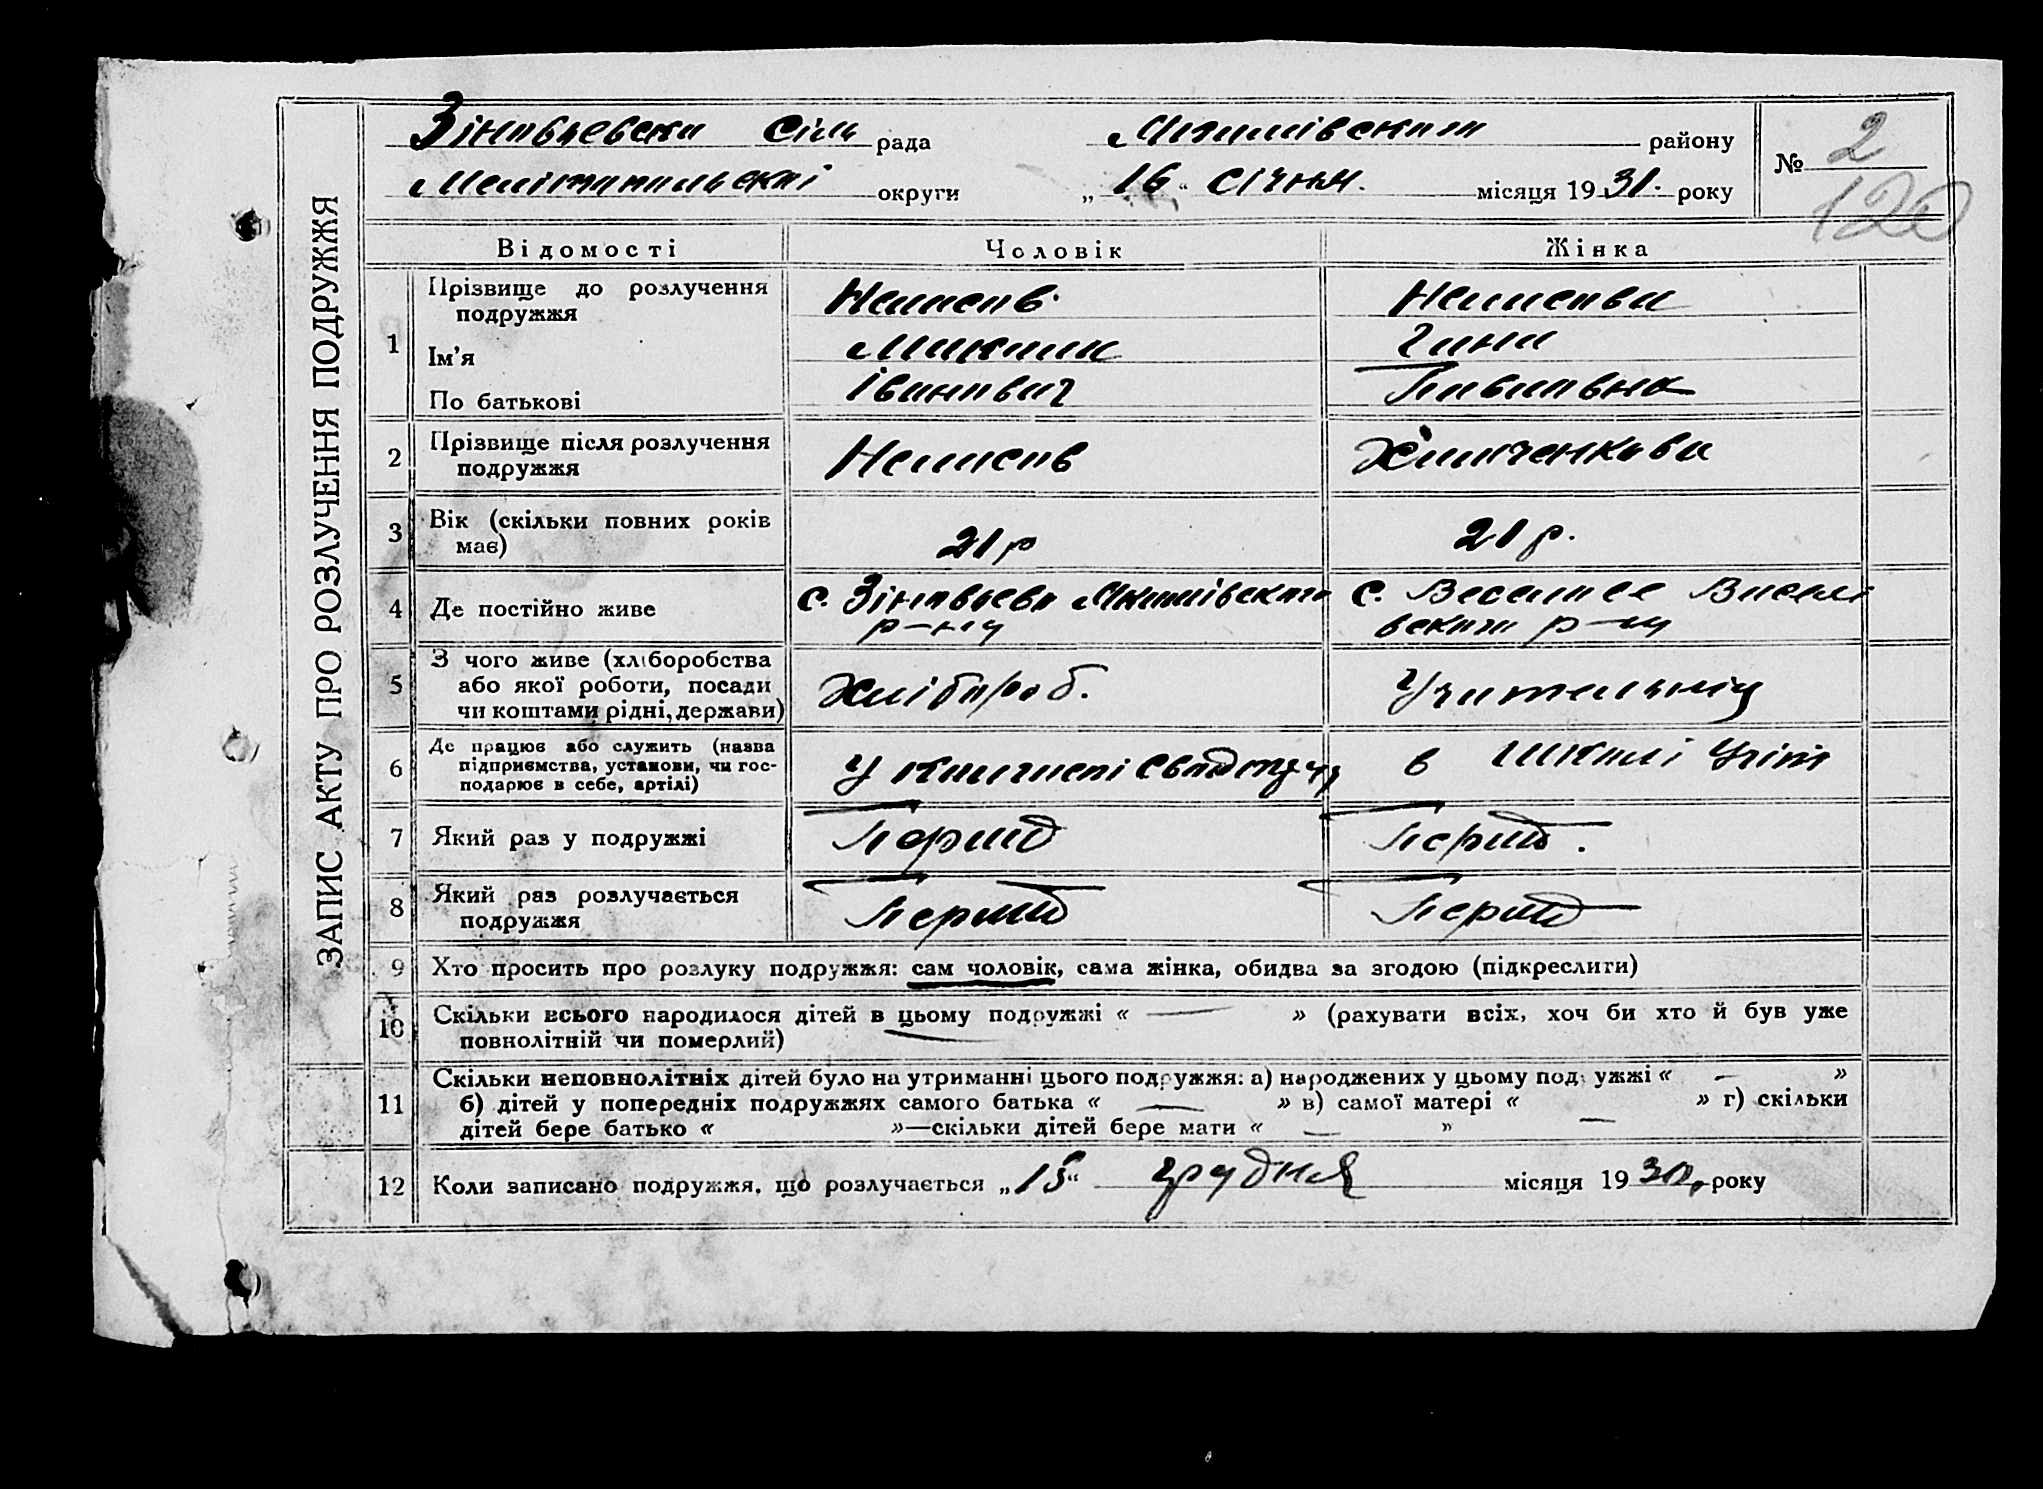 ЗАПИС АКТУ ПРО РОЗЛУЧЕННЯ ПОДРУЖЖЯ
Зіновьевска Сіль рада Якимівского району № 2
Мелітопольскої округи „16“ Січня. місяця 1931. року 120
Відомості Чоловік Жінка
1 Прізвище до розлучення подружжя
Ім'я Максим
По батькові Іванович Павловна
2 Прізвище після розлучення подружжя
3 Вік (скільки повних років має) 21 р 21 р.
4 Де постійно живе с. Зіновьево Якимівского р-ну с. Веселое Веселівского р-ну
5 З чого живе (хліборобства або якої роботи, посади чи коштами рідні, держави) Хлібороб. Учительніц
6 Де працює або служить (назва підприємства, установи, чи господарює в себе, артілі) У в Школі
7 Який раз у подружжі Перший Перший.
8 Який раз розлучається подружжя Перший Перший
9 Хто просить про розлуку подружжя: сам чоловік, сама жінка, обидва за згодою (підкреслити)
10 Скільки всього народилося дітей в цьому подружжі « — » (рахувати всіх, хоч би хто й був уже
повнолітній чи померлий) —
11 Скільки неповнолітніх дітей було на утриманні цього подружжя: а) народжених у цьому подружжі « — »
б) дітей у попередніх подружжях самого батька « — » в) самої матері « — » г) скільки
дітей бере батько « »—скільки дітей бере мати « — »
12 Коли записано подружжя, що розлучається „15“ грудня місяця 1930, року